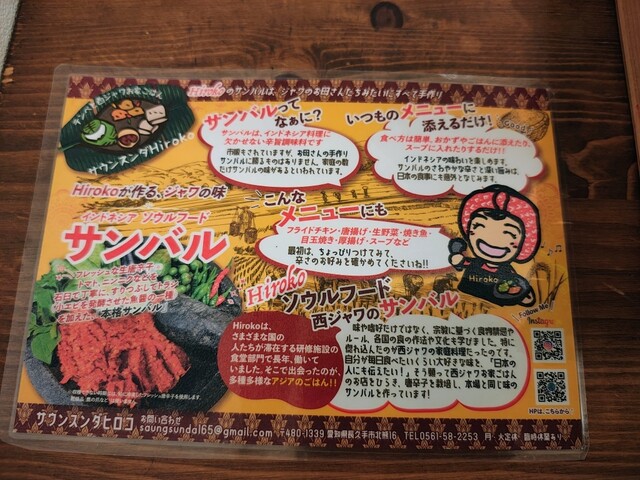 Hirokoのサンバルは、ジャワのお母さんたちみたいにすべて手作り
サウンスンダHiroko
Hirokoが作る、ジャワの味
インドネシア ソウルフード
サンバル
本格サンバル
サンバルって
なぁに?
サンバルは、インドネシア料理に
欠かせない辛旨調味料です
市販もされていますが、お母さんの手作り
サンバルに勝るものはありません。家庭の数
だけサンバルの味があるといわれています。
いつものメニューに
添えるだけ!
Good!
食べ方は簡単。おかずやごはんに添えたり、
スープに入れたりするだけ!!
インドネシアの味わいを楽しめます。
サンバルのさわやかな辛さと深い旨みは、
日本の食事にも意外となじみます。
こんな
メニューにも
フライドチキン・唐揚げ・生野菜・焼き魚・
目玉焼き・厚揚げ・スープなど
最初は、ちょっぴりつけてみて、
辛さのお好みを確かめてくださいね!!
Hiroko
Hiroko
ソウルフード
西ジャワのサンバル
Hirokoは、
さまざまな国の
人たちが滞在する研修施設の
食堂部門で長年、働いて
いました。そこで出会ったのが、
多種多様なアジアのごはん!!
味や嗜好だけではなく、宗教に基づく食物禁忌や
ルール、各国の食の作法や文化も学びました。特に
惚れ込んだのが西ジャワの家庭料理だったのです。
自分が毎日食べたいくらい大好きな味と、「日本の
人にも伝えたい!」。そう願って西ジャワお家ごはん
のお店をひらき、唐辛子を栽培し、本場と同じ味の
サンバルを作っています!
Follow Me!
Instagram
HPは、こちらから
サウンスンダヒロコ お問い合わせ
saungsunda165@gmail.com 〒480-1339 愛知県長久手市北熊16 TEL0561-58-2253 月・火定休 臨時休業あり